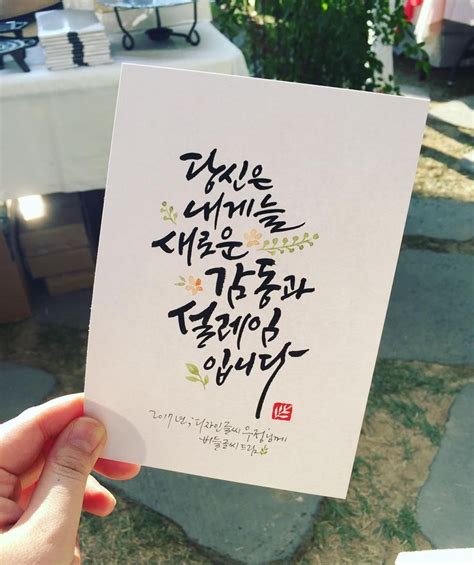 당신은
내게늘
새로운
감동과
설레임
입니다
2017년, 디자인글씨 우정님께
버들글씨드림